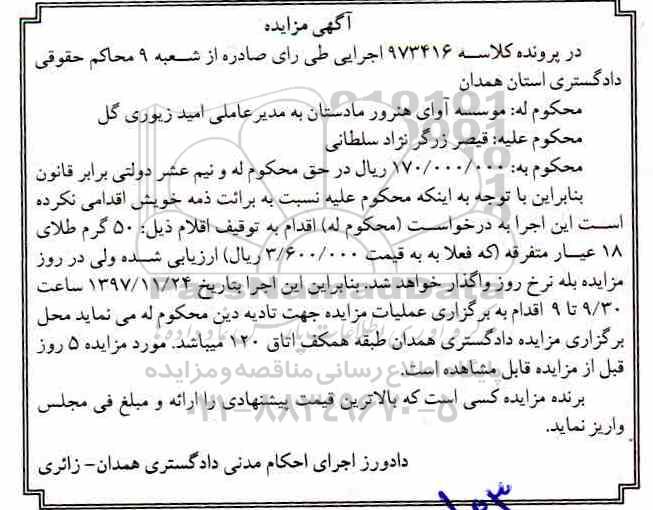 آگهی مزایده
در پرونده کلاسه ۹۷۳۴۱۶ اجرایی طی رای صادره از شعبه ۹ محاکم حقوقی
دادگستری استان همدان
محکوم له: موسسه آوای هنرور مادستان به مدیرعاملی امید زیوری گل
محکوم علیه: قیصر زرگر نژاد سلطانی
محکوم به: ۱۷۰/۰۰۰/۰۰۰ ریال در حق محکوم له و نیم عشر دولتی برابر قانون
بنابراین با توجه به اینکه محکوم علیه نسبت به برائت ذمه خویش اقدامی نکرده
است این اجرا به درخواست (محکوم له) اقدام به توقیف اقلام ذیل: ۵۰ گرم طلای
۱۸ عیار متفرقه (که فعلا به به قیمت ۳/۶۰۰/۰۰۰ ریال) ارزیابی شده ولی در روز
مزایده بله نرخ روز واگذار خواهد شد. بنابراین این اجرا بتاریخ ۱۳۹۷/۱۱/۲۴ ساعت
۹/۳۰ تا ۹ اقدام به برگزاری عملیات مزایده جهت تادیه دین محکوم له می نماید محل
برگزاری مزایده دادگستری همدان طبقه همکف اتاق ۱۲۰ میباشد. مورد مزایده ۵ روز
قبل از مزایده قابل مشاهده است.
برنده مزایده کسی است که بالاترین قیمت پیشنهادی را ارائه و مبلغ فی مجلس
واریز نماید.
دادورز اجرای احکام مدنی دادگستری همدان- زائری
ParsNamadData
پایگاه اطلاع رسانی مناقصه و مزایده
۰۲۱-۸۸۳۴۹۶۷۰-۵